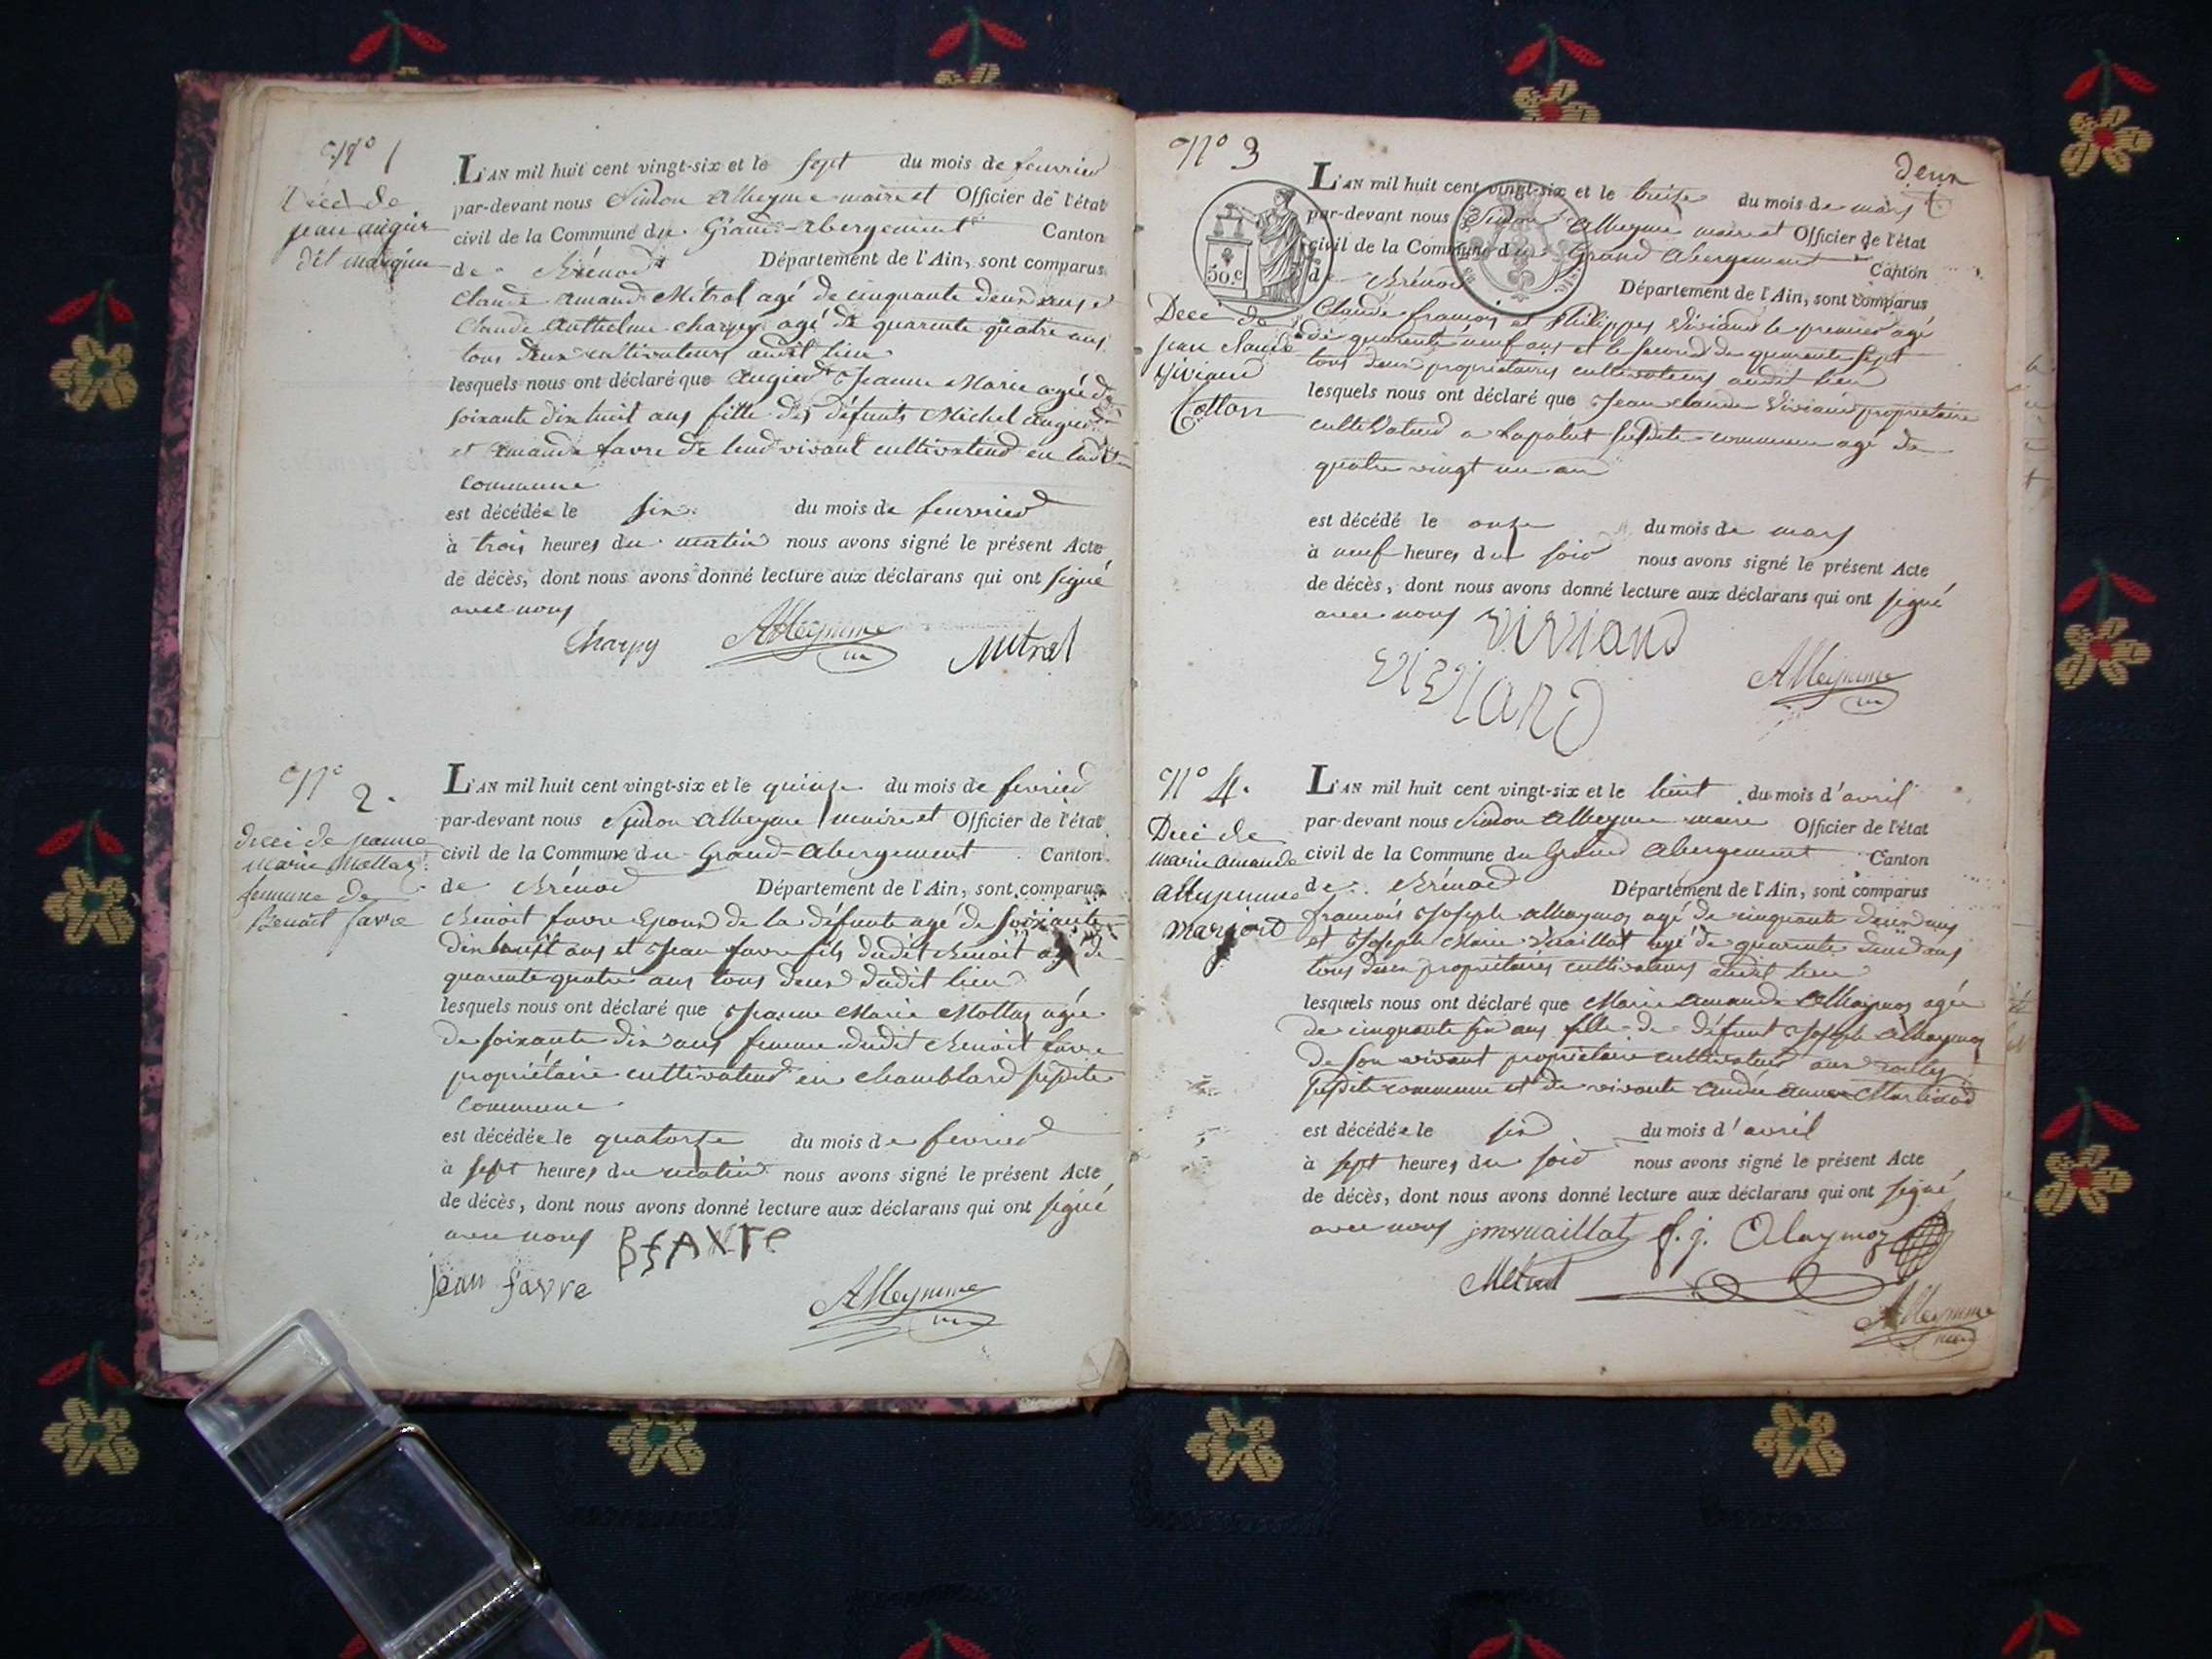 N° 1
Décè de
jean augier
dit
L'AN mil huit cent vingt-six et le sept du mois de feuvrier
par-devant nous Simon Alleyme maire et Officier de l'état
civil de la Commune du Grand-abergement Canton
de Brénod Département de l'Ain, sont comparus
Claude amand Métral agé de cinquante deux ans et
Claude Anthelme charpy agé de quarente quatre ans
tous deux cultivateurs audit lieu
lesquels nous ont déclaré que augier Jeanne Marie agée de
soixante dix huit ans fille des défunts Michel augier
et amande favre de leur vivant cultivateur en
commune
est décédée le six du mois de feuvrier
à trois heures du matin nous avons signé le présent Acte
de décès, dont nous avons donné lecture aux déclarans qui ont signé
avec nous
Charpy Alleymme Mitral
N° 2.
décé de jeanne
marie Mollaz
femme de
Benoit favre
L'AN mil huit cent vingt-six et le quinze du mois de fevrier
par-devant nous Simon Alleyme maire et Officier de l'état
civil de la Commune du Grand-abergement Canton
de Brénod Département de l'Ain, sont comparus
Benoit favre Epoux de la défunte agé de soixante
dix huit ans et Jean favre fils dudit Benoit agé de
quarente quatre ans tous deux dudit lieu
lesquels nous ont déclaré que Jeanne Marie Mollaz agée
de soixante dix ans femme dudit Benoit favre
propriétaire cultivateur en Chamblard susdite
commune
est décédée le quatorze du mois de fevrier
à sept heures du matin nous avons signé le présent Acte
de décès, dont nous avons donné lecture aux déclarans qui ont signé
avec nous
jean favre
Alleymme
N° 3
deux
50.c
Dece de
jean claude
viviand
Cotton
L'AN mil huit cent vingt-six et le treize du mois de mars
par-devant nous Simon Alleyme maire et Officier de l'état
civil de la Commune du Grand abergement Canton
de Brénod Département de l'Ain, sont comparus
Claude françois et Philippes Viviand le premier agé
de quarente neuf ans et le second de quarente sept
tous deux propriétaires cultivateurs audit lieu
lesquels nous ont déclaré que Jean claude Viviand propriétaire
cultivateur a Lapalut susdite commune agé de
quatre vingt un an
est décédé le onze du mois de mars
à neuf heures du soir nous avons signé le présent Acte
de décès, dont nous avons donné lecture aux déclarans qui ont signé
avec nous viviand
viviand
Alleymme
N° 4.
Décé de
marie amande
alleymme
marjoid
L'AN mil huit cent vingt-six et le huit du mois d'avril
par-devant nous Simon Alleyme maire Officier de l'état
civil de la Commune du Grand abergement Canton
de Brénod Département de l'Ain, sont comparus
françois Joseph alleymoz agé de cinquante deux ans
et Joseph Marie Vuaillat agé de quarente deux ans
tous deux propriétaires cultivateurs audit lieu
lesquels nous ont déclaré que Marie amande Alleymoz agée
de cinquante six ans fille de défunt Joseph alleymoz
de son vivant propriétaire cultivateur aux
susdite commune et de vivante andré anne Martinod
est décédée le six du mois d'avril
à sept heures du soir nous avons signé le présent Acte
de décès, dont nous avons donné lecture aux déclarans qui ont signé
avec nous jm vuaillat f. j. Alaymoz
Metral
Alleymme